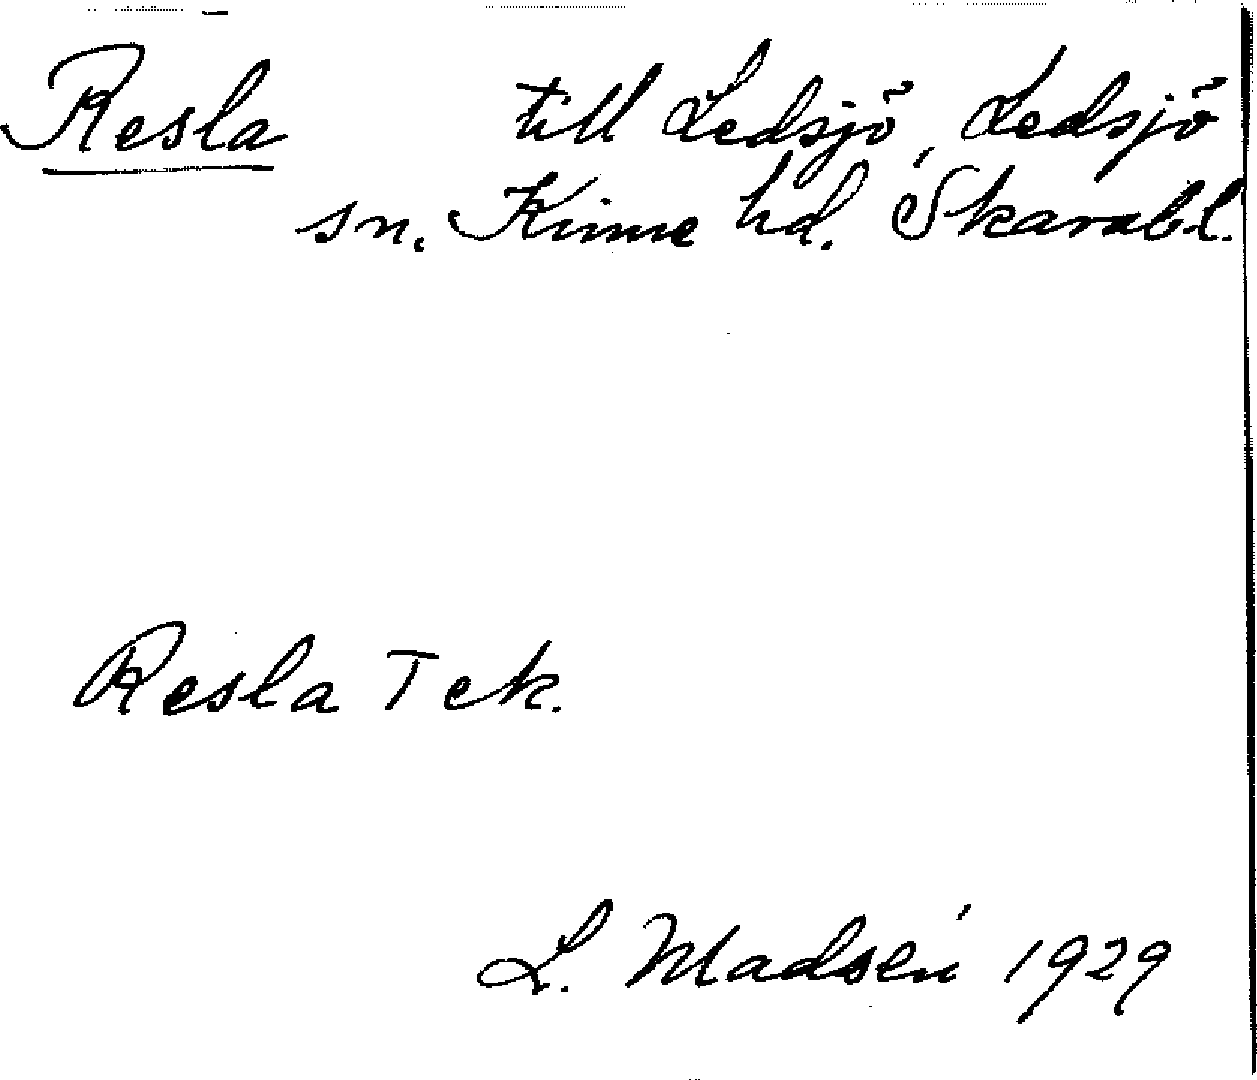 Resla till Ledsjö, Ledsjö
sn. Kinne hd. Skarabl.
Resla T ek.
L. Madsén 1929